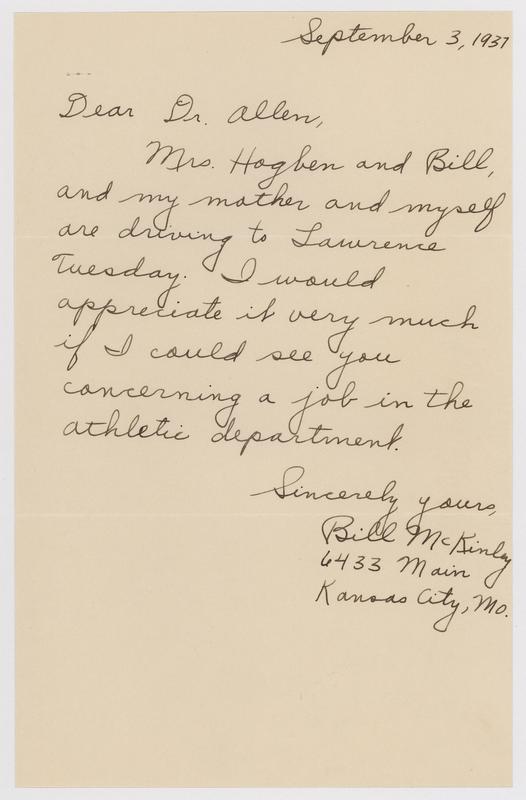 September 3, 1937
Dear Dr. Allen,
Mrs. Hogben and Bill,
and my mother and myself
are driving to Lawrence
Tuesday. I would
appreciate it very much
if I could see you
concerning a job in the
athletic department.
Sincerely yours,
Bill McKinley
6433 Main
Kansas City, Mo.